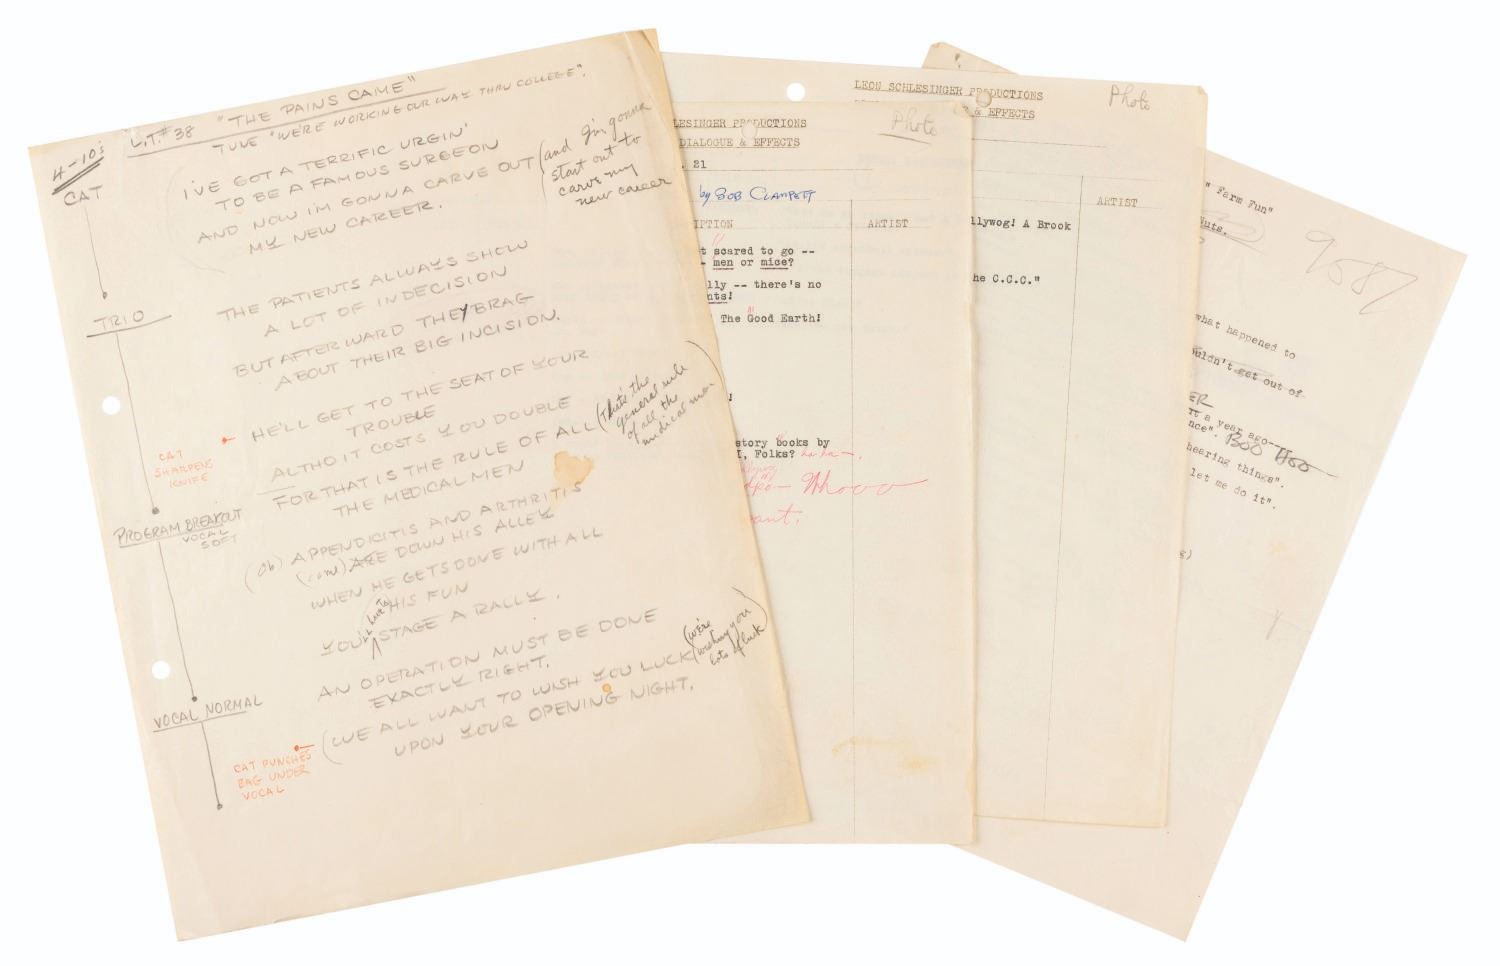 4-10's
L.T. #38 "THE PAINS CAME"
TUNE "WE'RE WORKING OUR WAY THRU COLLEGE".
CAT
I'VE GOT A TERRIFIC URGIN'
TO BE A FAMOUS SURGEON
AND NOW I'M GONNA CARVE OUT
MY NEW CAREER.
(and I'm gonna
start out to
carve my
new career
TRIO
THE PATIENTS ALWAYS SHOW
A LOT OF INDECISION
BUT AFTERWARD THEY BRAG
ABOUT THEIR BIG INCISION.
HE'LL GET TO THE SEAT OF YOUR
TROUBLE
ALTHO IT COSTS YOU DOUBLE
FOR THAT IS THE RULE OF ALL
THE MEDICAL MEN
(that's the
general rule
of all the
medical men
CAT
SHARPENS
KNIFE
PROGRAM BREAKOUT
VOCAL
SOFT
(Oh) APPENDICITIS AND ARTHRITIS
(come) ARE DOWN HIS ALLEY
WHEN HE GETS DONE WITH ALL
HIS FUN
YOU'LL have to STAGE A RALLY.
AN OPERATION MUST BE DONE
EXACTLY RIGHT.
VOCAL NORMAL
(WE ALL WANT TO WISH YOU LUCK
UPON YOUR OPENING NIGHT.
(we're
wishing you
lots of luck)
CAT PUNCHES
BAG UNDER
VOCAL
LESINGER PRODUCTIONS
DIALOGUE & EFFECTS
Photo
. 21
by BOB CLAMPETT
IPTION
ARTIST
t scared to go --
- men or mice?
lly -- there's no
nts!
The Good Earth!
!
story books by
I, Folks? ha ha-.
LEON SCHLESINGER PRODUCTIONS
& EFFECTS
Photo
ARTIST
llywog! A Brook
he C.C.C."
" Farm Fun"
Nuts.
9587
what happened to
ouldn't get out of
ER
it a year ago--
nce". BOO HOO
hearing things".
let me do it".